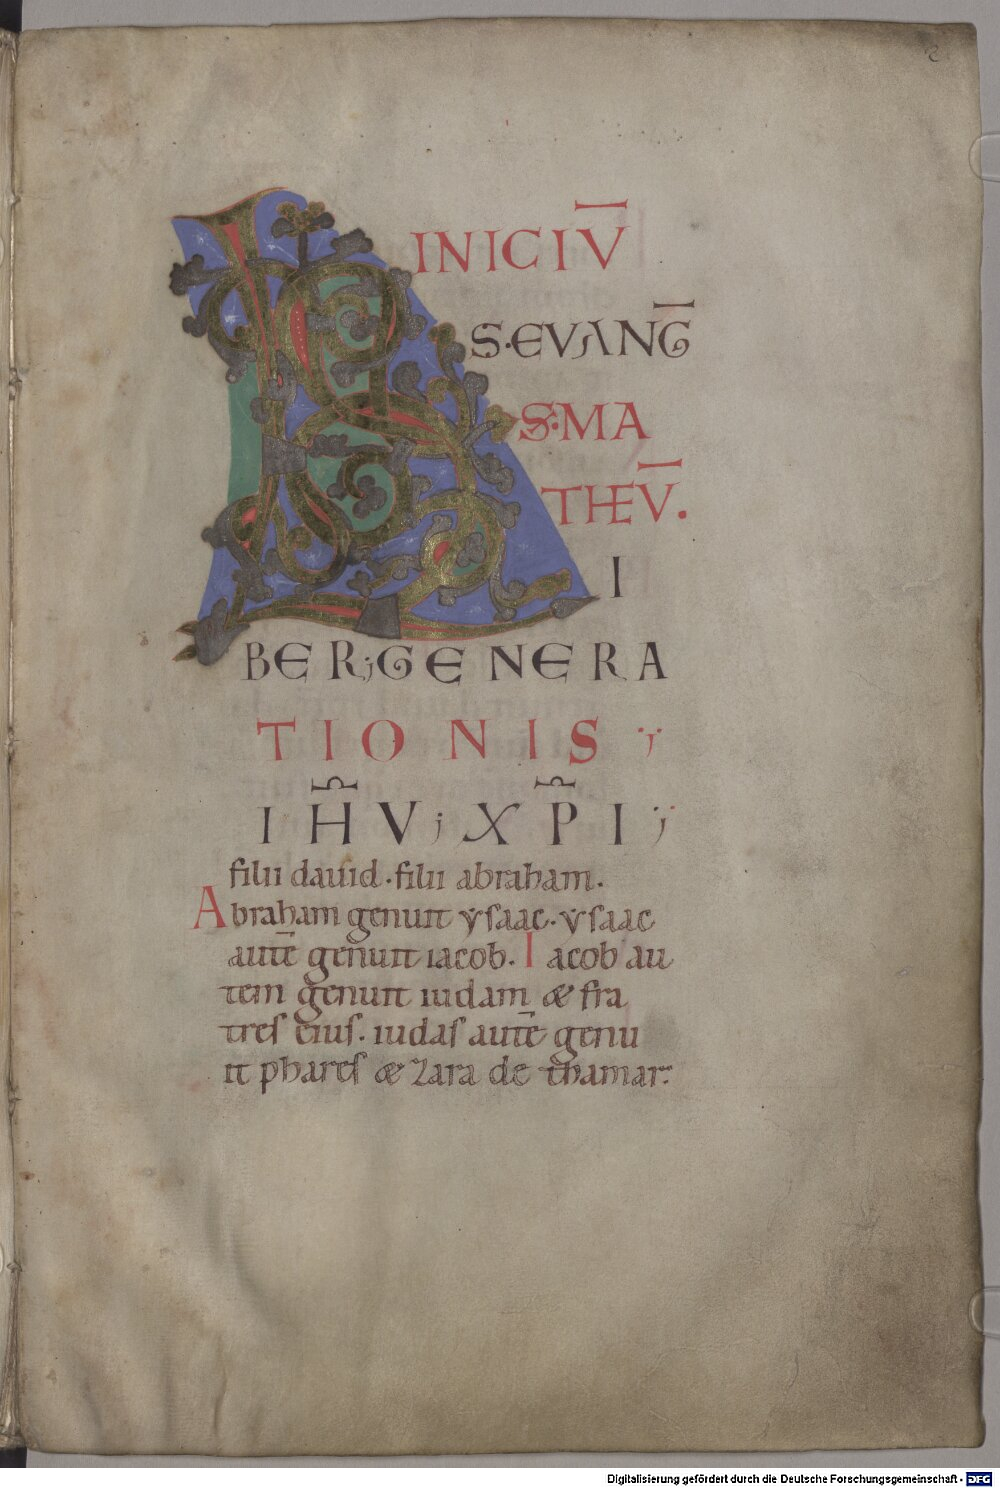 2
INICIV̄
S·EVANḠ
S·MA
THEV̄.
L I
BER;GENERA
TIONIS;
IH̄V;XP̄I;
filii dauid·filii abraham.
Abraham genuit ẏsaac·ẏsaac
autē genuit iacob. Iacob au
tem genuit iudam & fra
tres eius. iudas autē genu
it phares & zara de thamar.
Digitalisierung gefördert durch die Deutsche Forschungsgemeinschaft - DFG